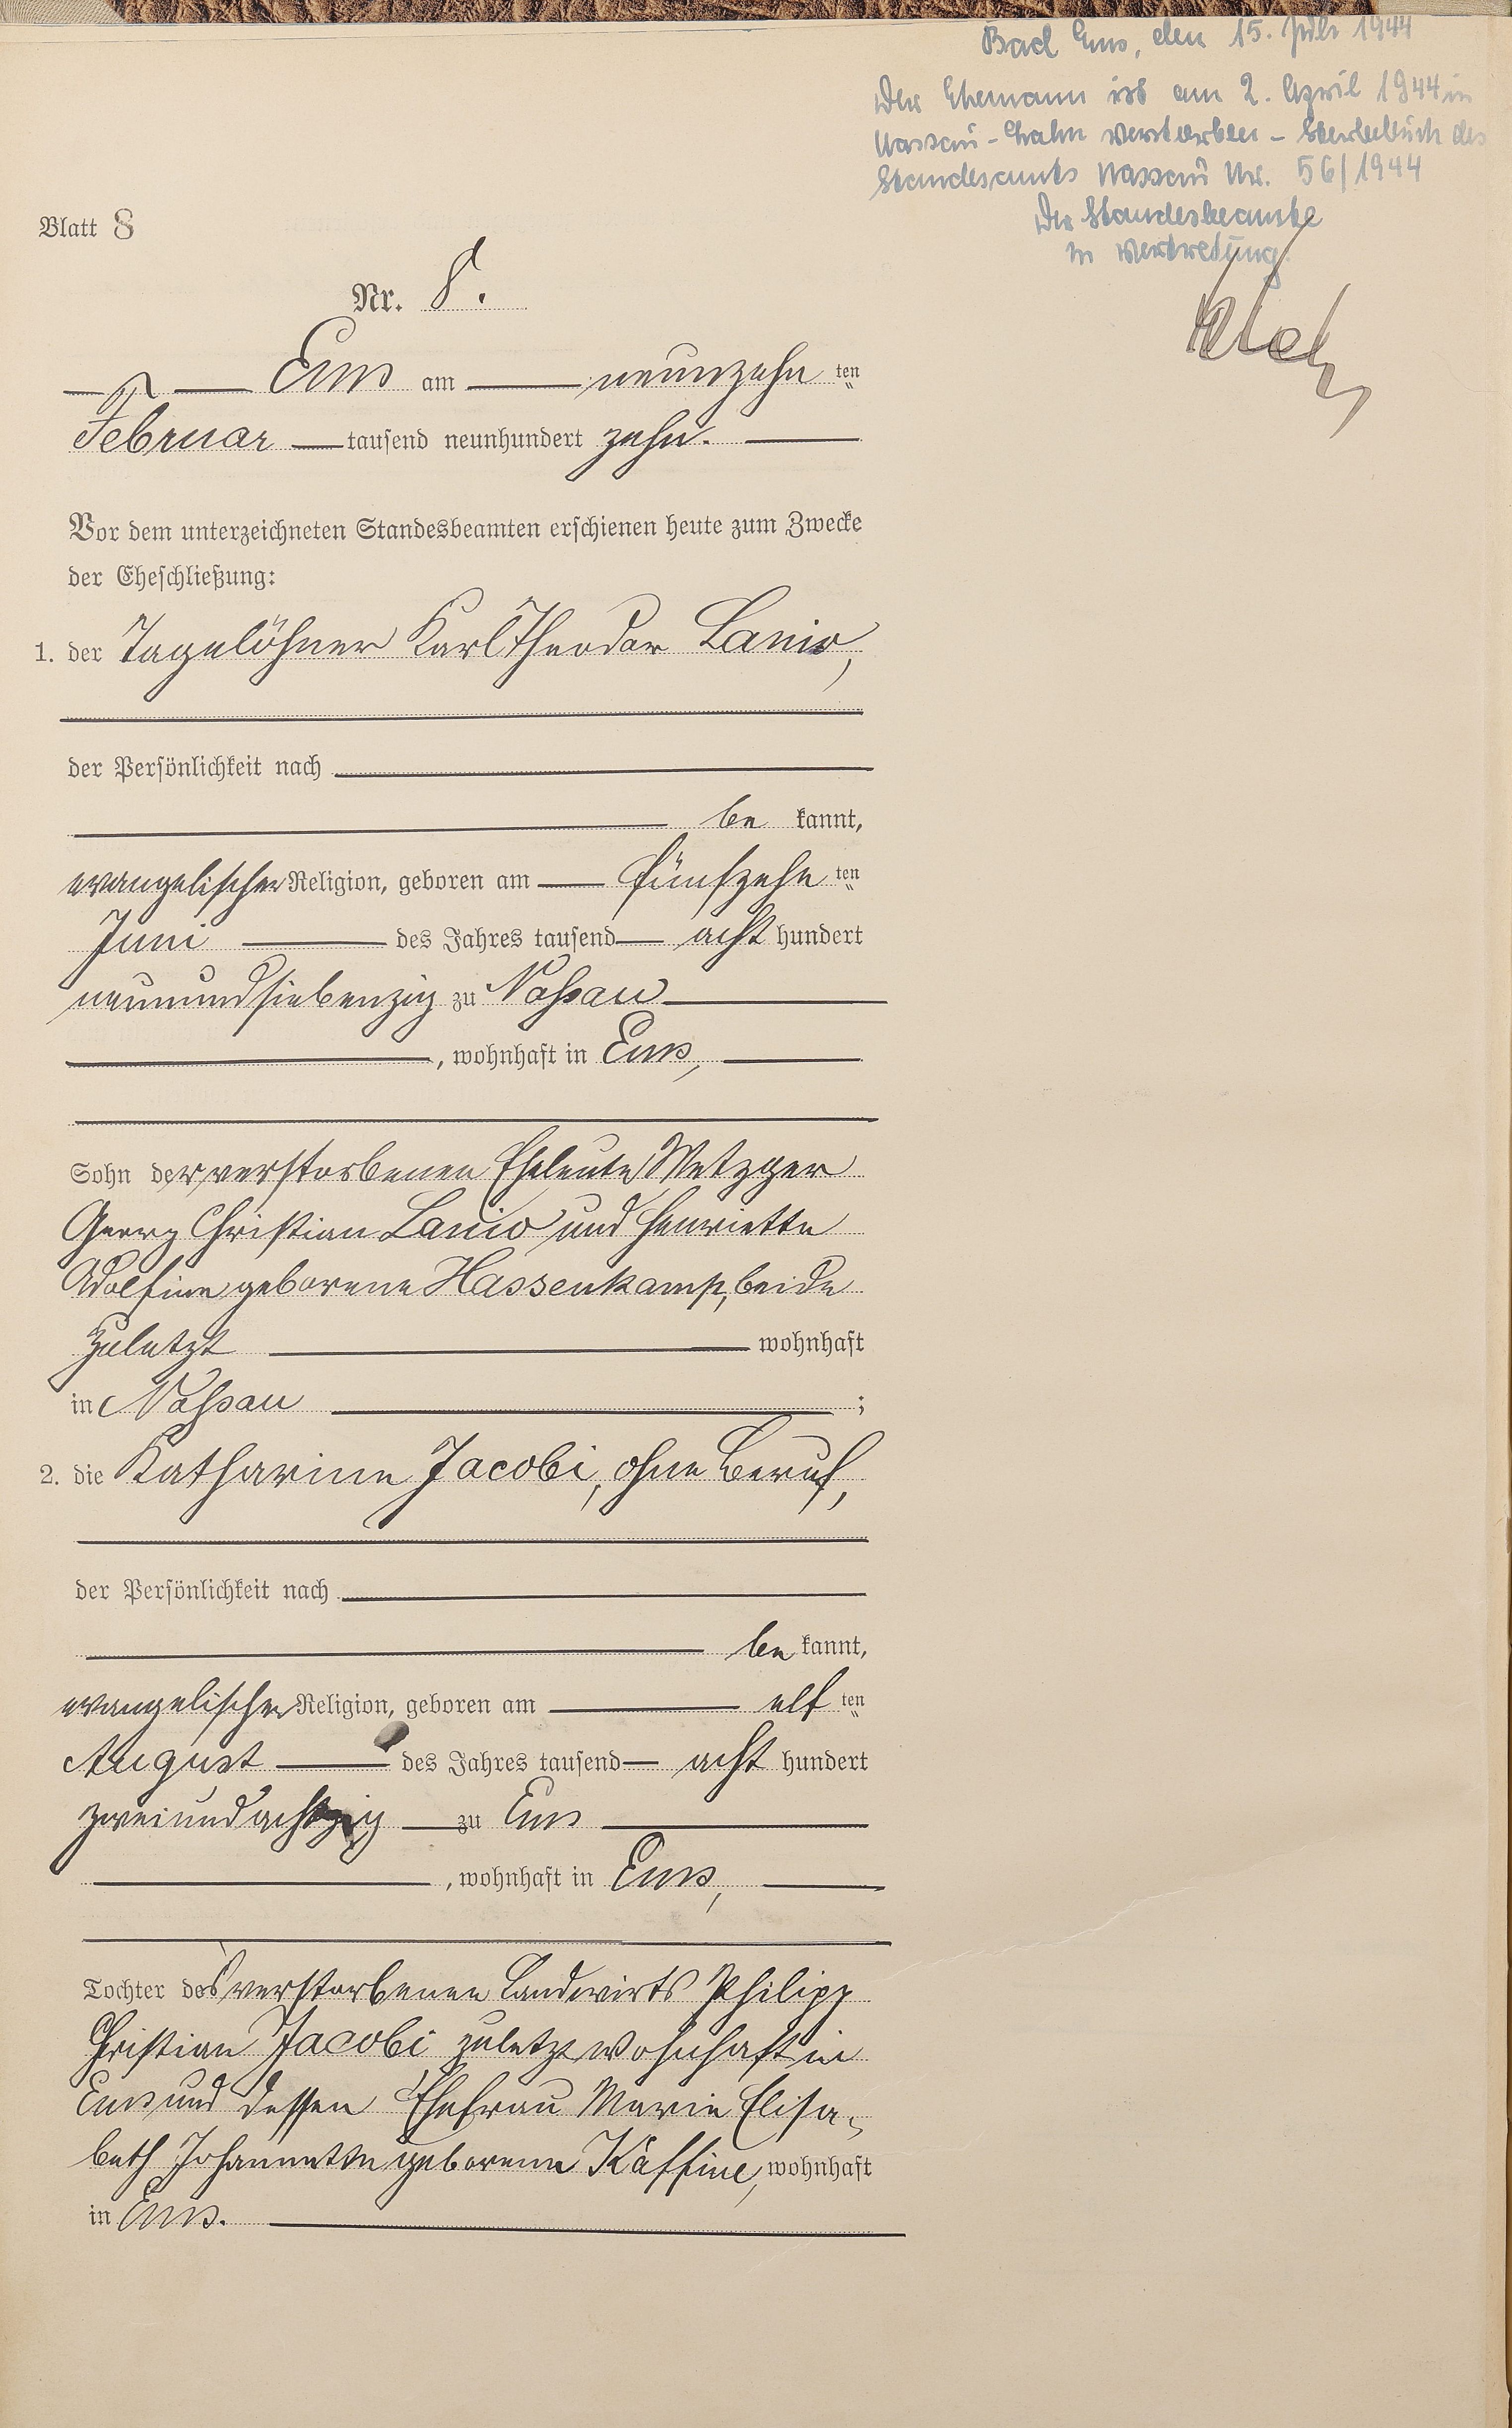 Bad Ems, den 15. Juli 1944
Der Ehemann ist am 2. April 1944 in
Nassau-Lahn verstorben – Sterbebuch des
Standesamts Nassau Nr. 56/1944
Der Standesbeamte
In Vertretung
Blatt 8
Nr. 8.
Ems am neunzehn ten
Februar tausend neunhundert zehn.
Vor dem unterzeichneten Standesbeamten erschienen heute zum Zwecke
der Eheschließung:
1. der Tagelöhner Karl Theodor Lanio,
der Persönlichkeit nach
be kannt,
evangelischer Religion, geboren am fünfzehn ten
Juni des Jahres tausend acht hundert
neunundsiebenzig zu Nassau
, wohnhaft in Ems,
Sohn der verstorbenen Eheleute Metzger
Georg Christian Lanio und Henriette
Adolfine geborene Hassenkamp, beide
zuletzt wohnhaft
in Nassau ;
2. die Katharine Jacobi, ohne Beruf,
der Persönlichkeit nach
be kannt,
evangelischer Religion, geboren am elf ten
August des Jahres tausend acht hundert
zweiundachtzig zu Ems
, wohnhaft in Ems,
Tochter des verstorbenen Landwirts Philipp
Christian Jacobi zuletzt wohnhaft in
Ems und dessen Ehefrau Marie Elisa-
beth Johannette geborene Kaffine, wohnhaft
in Ems.